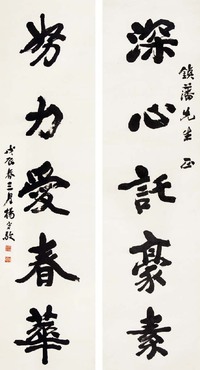 深心託豪素
鎮藩先生正
努力愛春華
戊辰春三月楊守敬